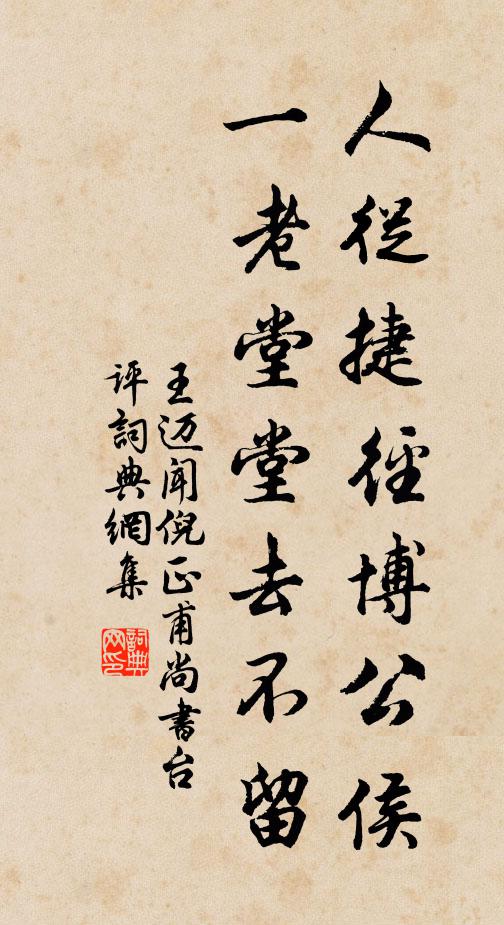 人從捷徑博公侯
一老堂堂去不留
王迈闻倪正甫尚書台
评詞典網集
詞典网印